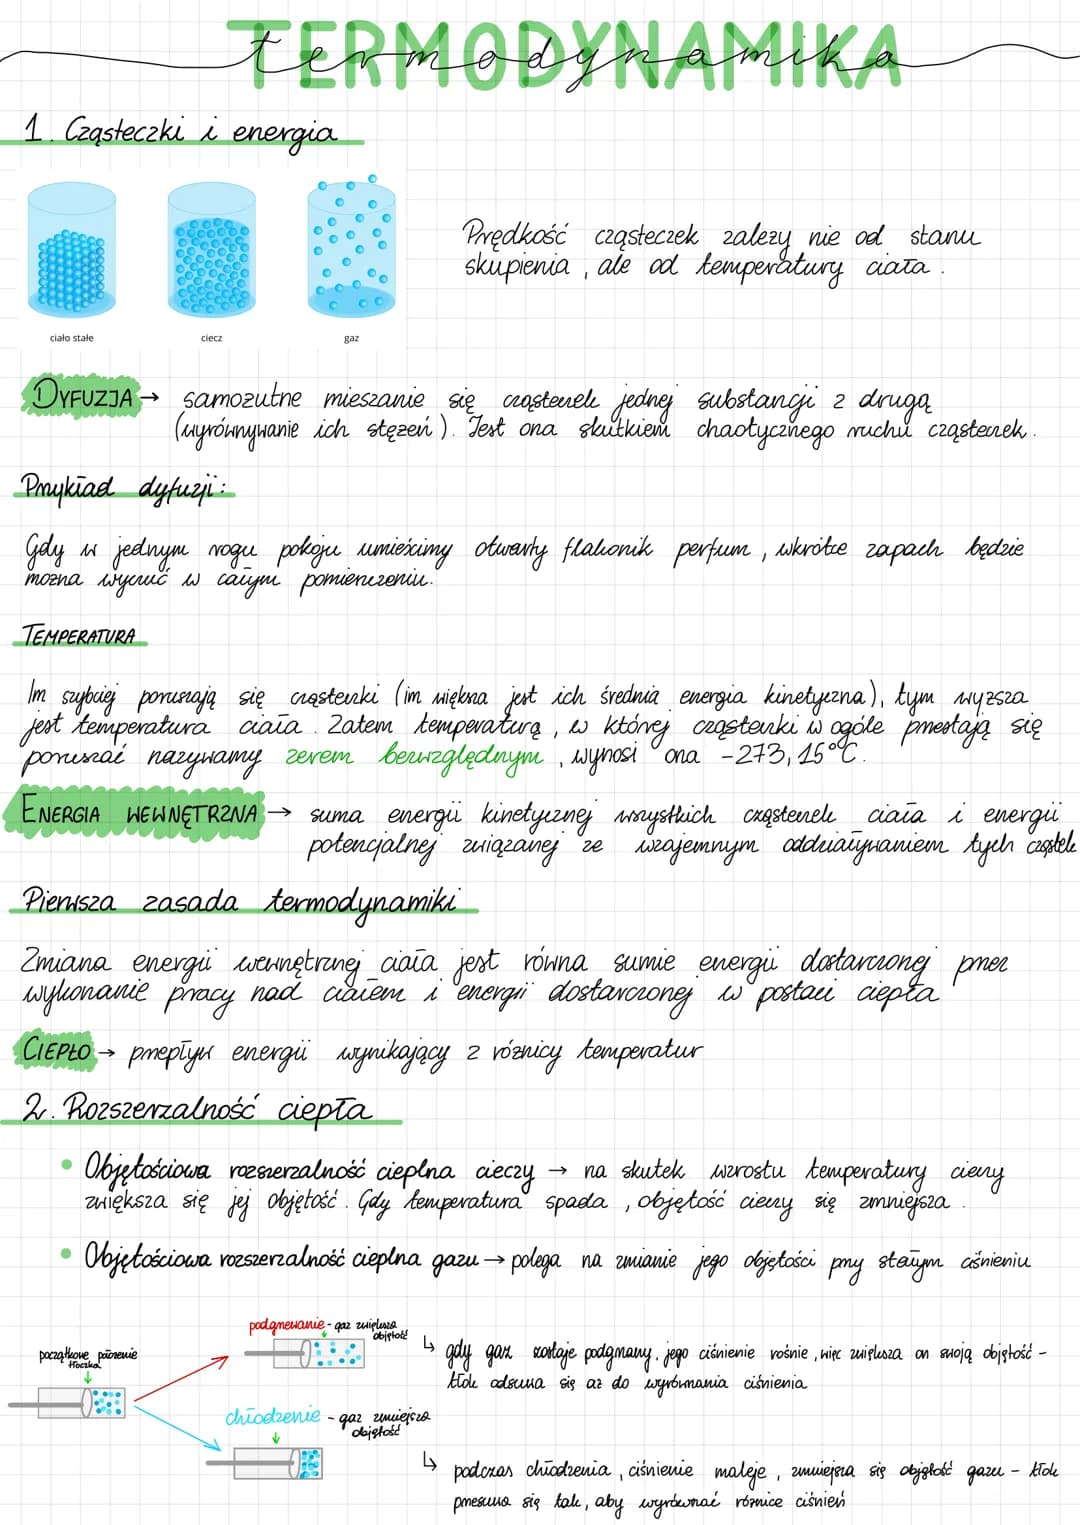 TERMODYNAMIKA
termodynamika
1. Cząsteczki i energia
ciało stałe
ciecz
gaz
Prędkość cząsteczek zależy nie od stanu
skupienia, ale od temperatury ciała.
DYFUZJA → samorzutne mieszanie się cząsteczek jednej substancji z drugą
(wyrównywanie ich stężeń). Jest ona skutkiem chaotycznego ruchu cząsteczek.
Przykład dyfuzji:
Gdy w jednym rogu pokoju umieścimy otwarty flakonik perfum, wkrótce zapach będzie
można wyczuć w całym pomieszczeniu.
TEMPERATURA
Im szybciej poruszają się cząsteczki (im większa jest ich średnia energia kinetyczna), tym wyższa
jest temperatura ciała. Zatem temperaturą, w której cząsteczki w ogóle przestają się
poruszać nazywamy zerem bezwzględnym, wynosi ona -273,15°C.
ENERGIA WEWNĘTRZNA → suma energii kinetycznej wszystkich cząsteczek ciała i energii
potencjalnej związanej ze wzajemnym oddziaływaniem tych cząstek
Pierwsza zasada termodynamiki
Zmiana energii wewnętrznej ciała jest równa sumie energii dostarczonej przez
wykonanie pracy nad ciałem i energii dostarczonej w postaci ciepła
CIEPŁO → przepływ energii wynikający z różnicy temperatur
2. Rozszerzalność ciepła
• Objętościowa rozszerzalność cieplna cieczy → na skutek wzrostu temperatury cieczy
zwiększa się jej objętość. Gdy temperatura spada, objętość cieczy się zmniejsza.
• Objętościowa rozszerzalność cieplna gazu → polega na zmianie jego objętości przy stałym ciśnieniu
początkowe położenie
tłoczka
podgrzewanie - gaz zwiększa
objętość
↳ gdy gaz zostaje podgrzany, jego ciśnienie rośnie, więc zwiększa on swoją objętość -
tłok odsuwa się aż do wyrównania ciśnienia
chłodzenie - gaz zmniejsza
objętość
↳ podczas chłodzenia, ciśnienie maleje, zmniejsza się objętość gazu - tłok
przesuwa się tak, aby wyrównać różnice ciśnień